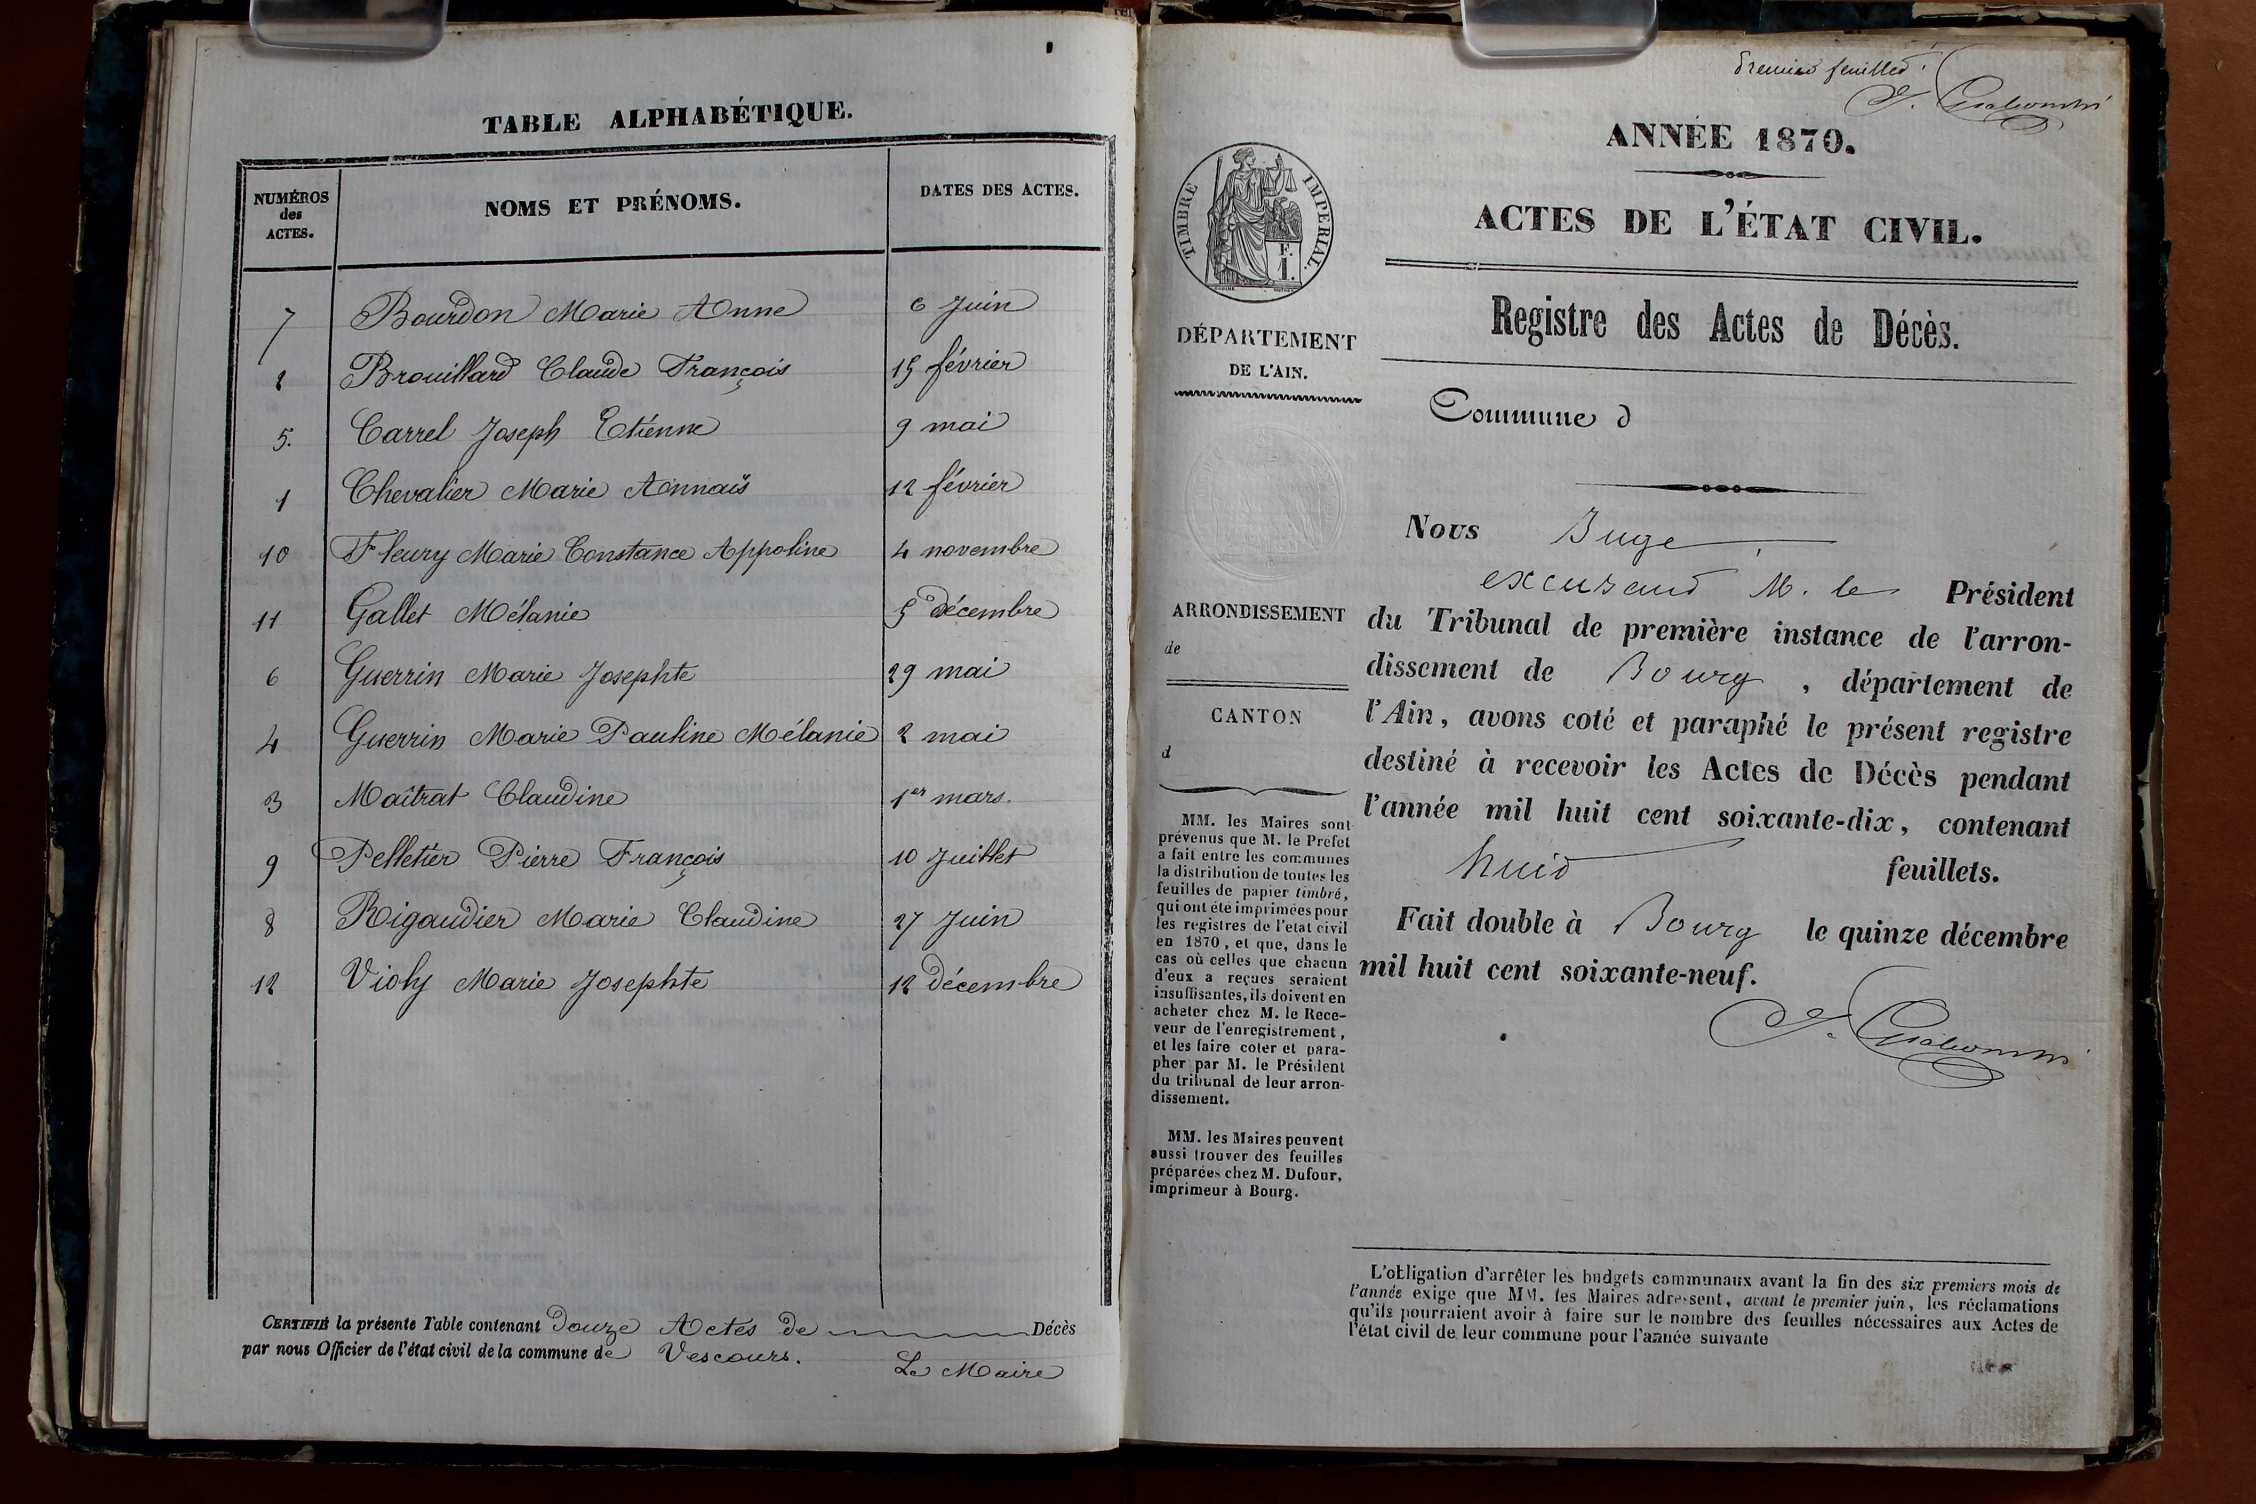 TABLE ALPHABÉTIQUE.
NUMÉROS des ACTES.
NOMS ET PRÉNOMS.
DATES DES ACTES.
7 Bourdon Marie Anne 6 Juin
2 Brouillard Claude François 15 février
5. Carrel Joseph Etienne 9 mai
1 Chevalier Marie Annaïs 12 février
10 Fleury Marie Constance Appoline 4 novembre
11 Gallet Mélanie 5 décembre
6 Guerrin Marie Josephte 29 mai
4 Guerrin Marie Pauline Mélanie 2 mai
3 Maîtrat Claudine 1er mars.
9 Pelletier Pierre François 10 Juillet
8 Rigaudier Marie Claudine 27 Juin
12 Violy Marie Josephte 12 décembre
CERTIFIÉ la présente Table contenant Douze Actes de Décès
par nous Officier de l'état civil de la commune de Vescours.
Le Maire
Premier feuillet.
ANNÉE 1870.
ACTES DE L'ÉTAT CIVIL.
TIMBRE IMPERIAL.
F.
1.
Registre des Actes de Décès.
DÉPARTEMENT
DE L'AIN.
Commune d
ARRONDISSEMENT
de
CANTON
d
MM. les Maires sont
prévenus que M. le Préfet
a fait entre les communes
la distribution de toutes les
feuilles de papier timbré,
qui ont été imprimées pour
les registres de l'état civil
en 1870, et que, dans le
cas où celles que chacun
d'eux a reçues seraient
insuffisantes, ils doivent en
acheter chez M. le Rece-
veur de l'enregistrement,
et les faire coter et para-
pher par M. le Président
du tribunal de leur arron-
dissement.
MM. les Maires peuvent
aussi trouver des feuilles
préparées chez M. Dufour,
imprimeur à Bourg.
Nous Juge
M. le Président
du Tribunal de première instance de l'arron-
dissement de Bourg, département de
l'Ain, avons coté et paraphé le présent registre
destiné à recevoir les Actes de Décès pendant
l'année mil huit cent soixante-dix, contenant
huit feuillets.
Fait double à Bourg le quinze décembre
mil huit cent soixante-neuf.
L'obligation d'arrêter les budgets communaux avant la fin des six premiers mois de
l'année exige que MM. les Maires adressent, avant le premier juin, les réclamations
qu'ils pourraient avoir à faire sur le nombre des feuilles nécessaires aux Actes de
l'état civil de leur commune pour l'année suivante